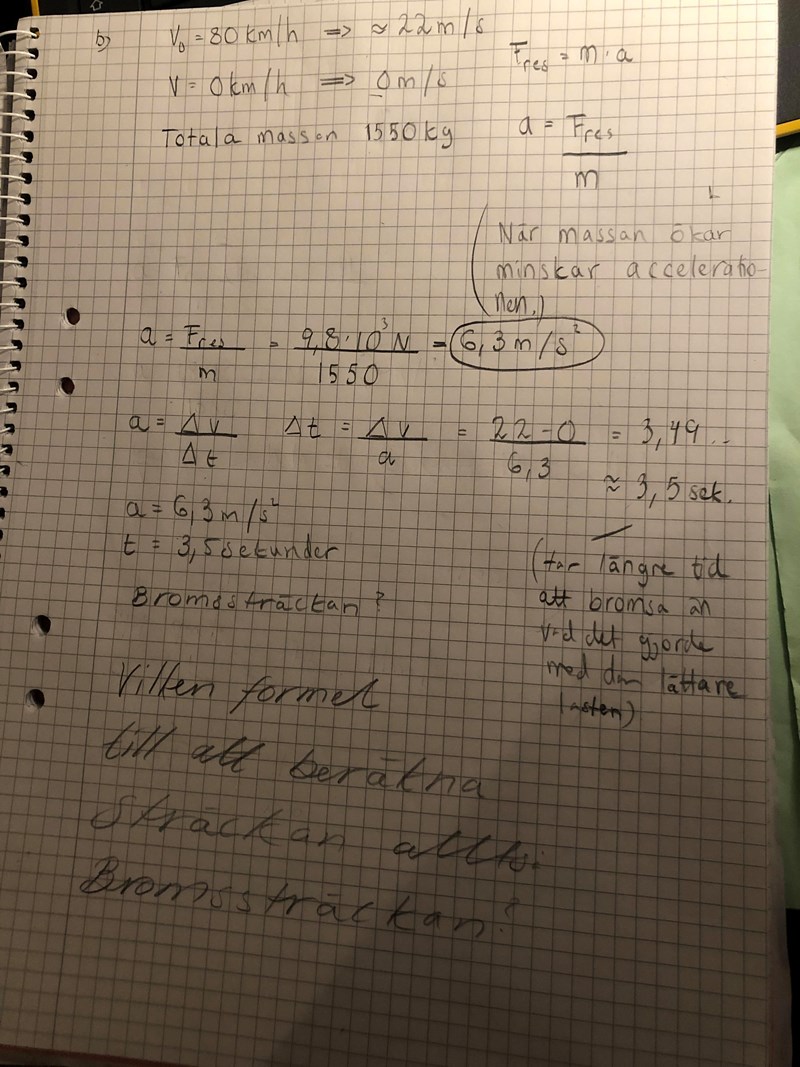 b) V₀ = 80 km/h => ≈ 22 m/s
V = 0 km/h => 0 m/s
Totala massan 1550 kg
F_res = m · a
a = F_res / m
(När massan ökar
minskar acceleratio-
nen.)
a = F_res / m = 9,8·10³ N / 1550 = 6,3 m/s²
a = Δv / Δt Δt = Δv / a = 22-0 / 6,3 = 3,49..
≈ 3,5 sek.
a = 6,3 m/s²
t = 3,5 sekunder
Bromssträckan?
(tar längre tid
att bromsa än
vad det gjorde
med den lättare
lasten)
Vilken formel
till att beräkna
sträckan alltså
Bromssträckan?